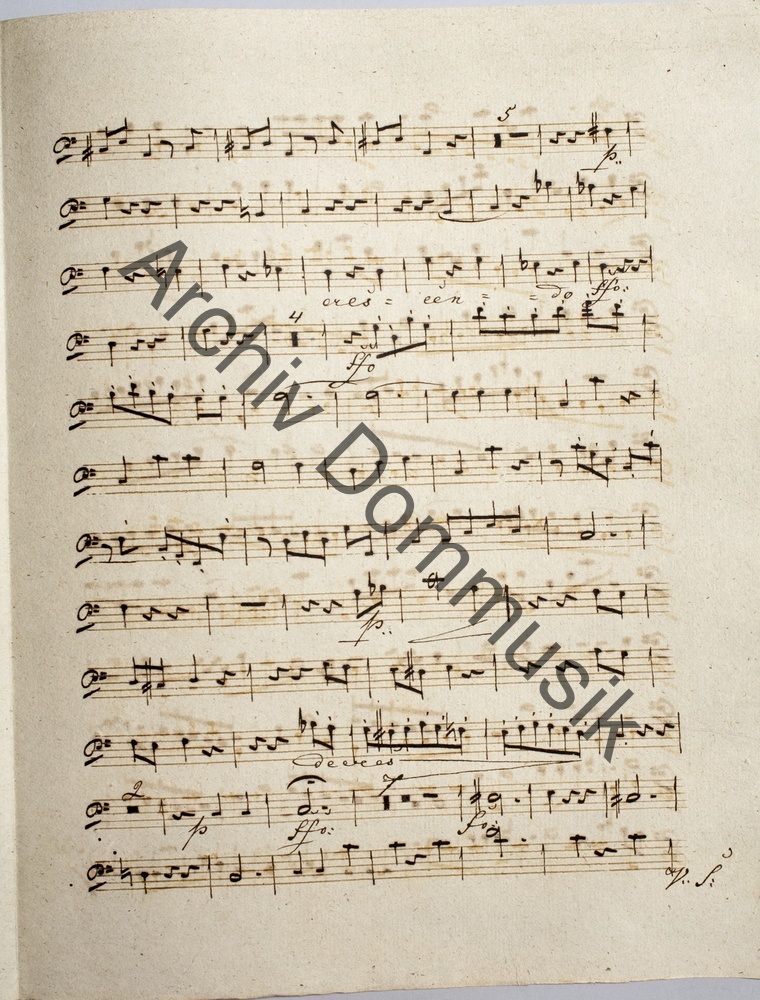 5
p.
cres = cen = = do ffo:
4
ffo
p.
decres
2
7
p
ffo:
fo:
V. S:
Archiv Dommusik